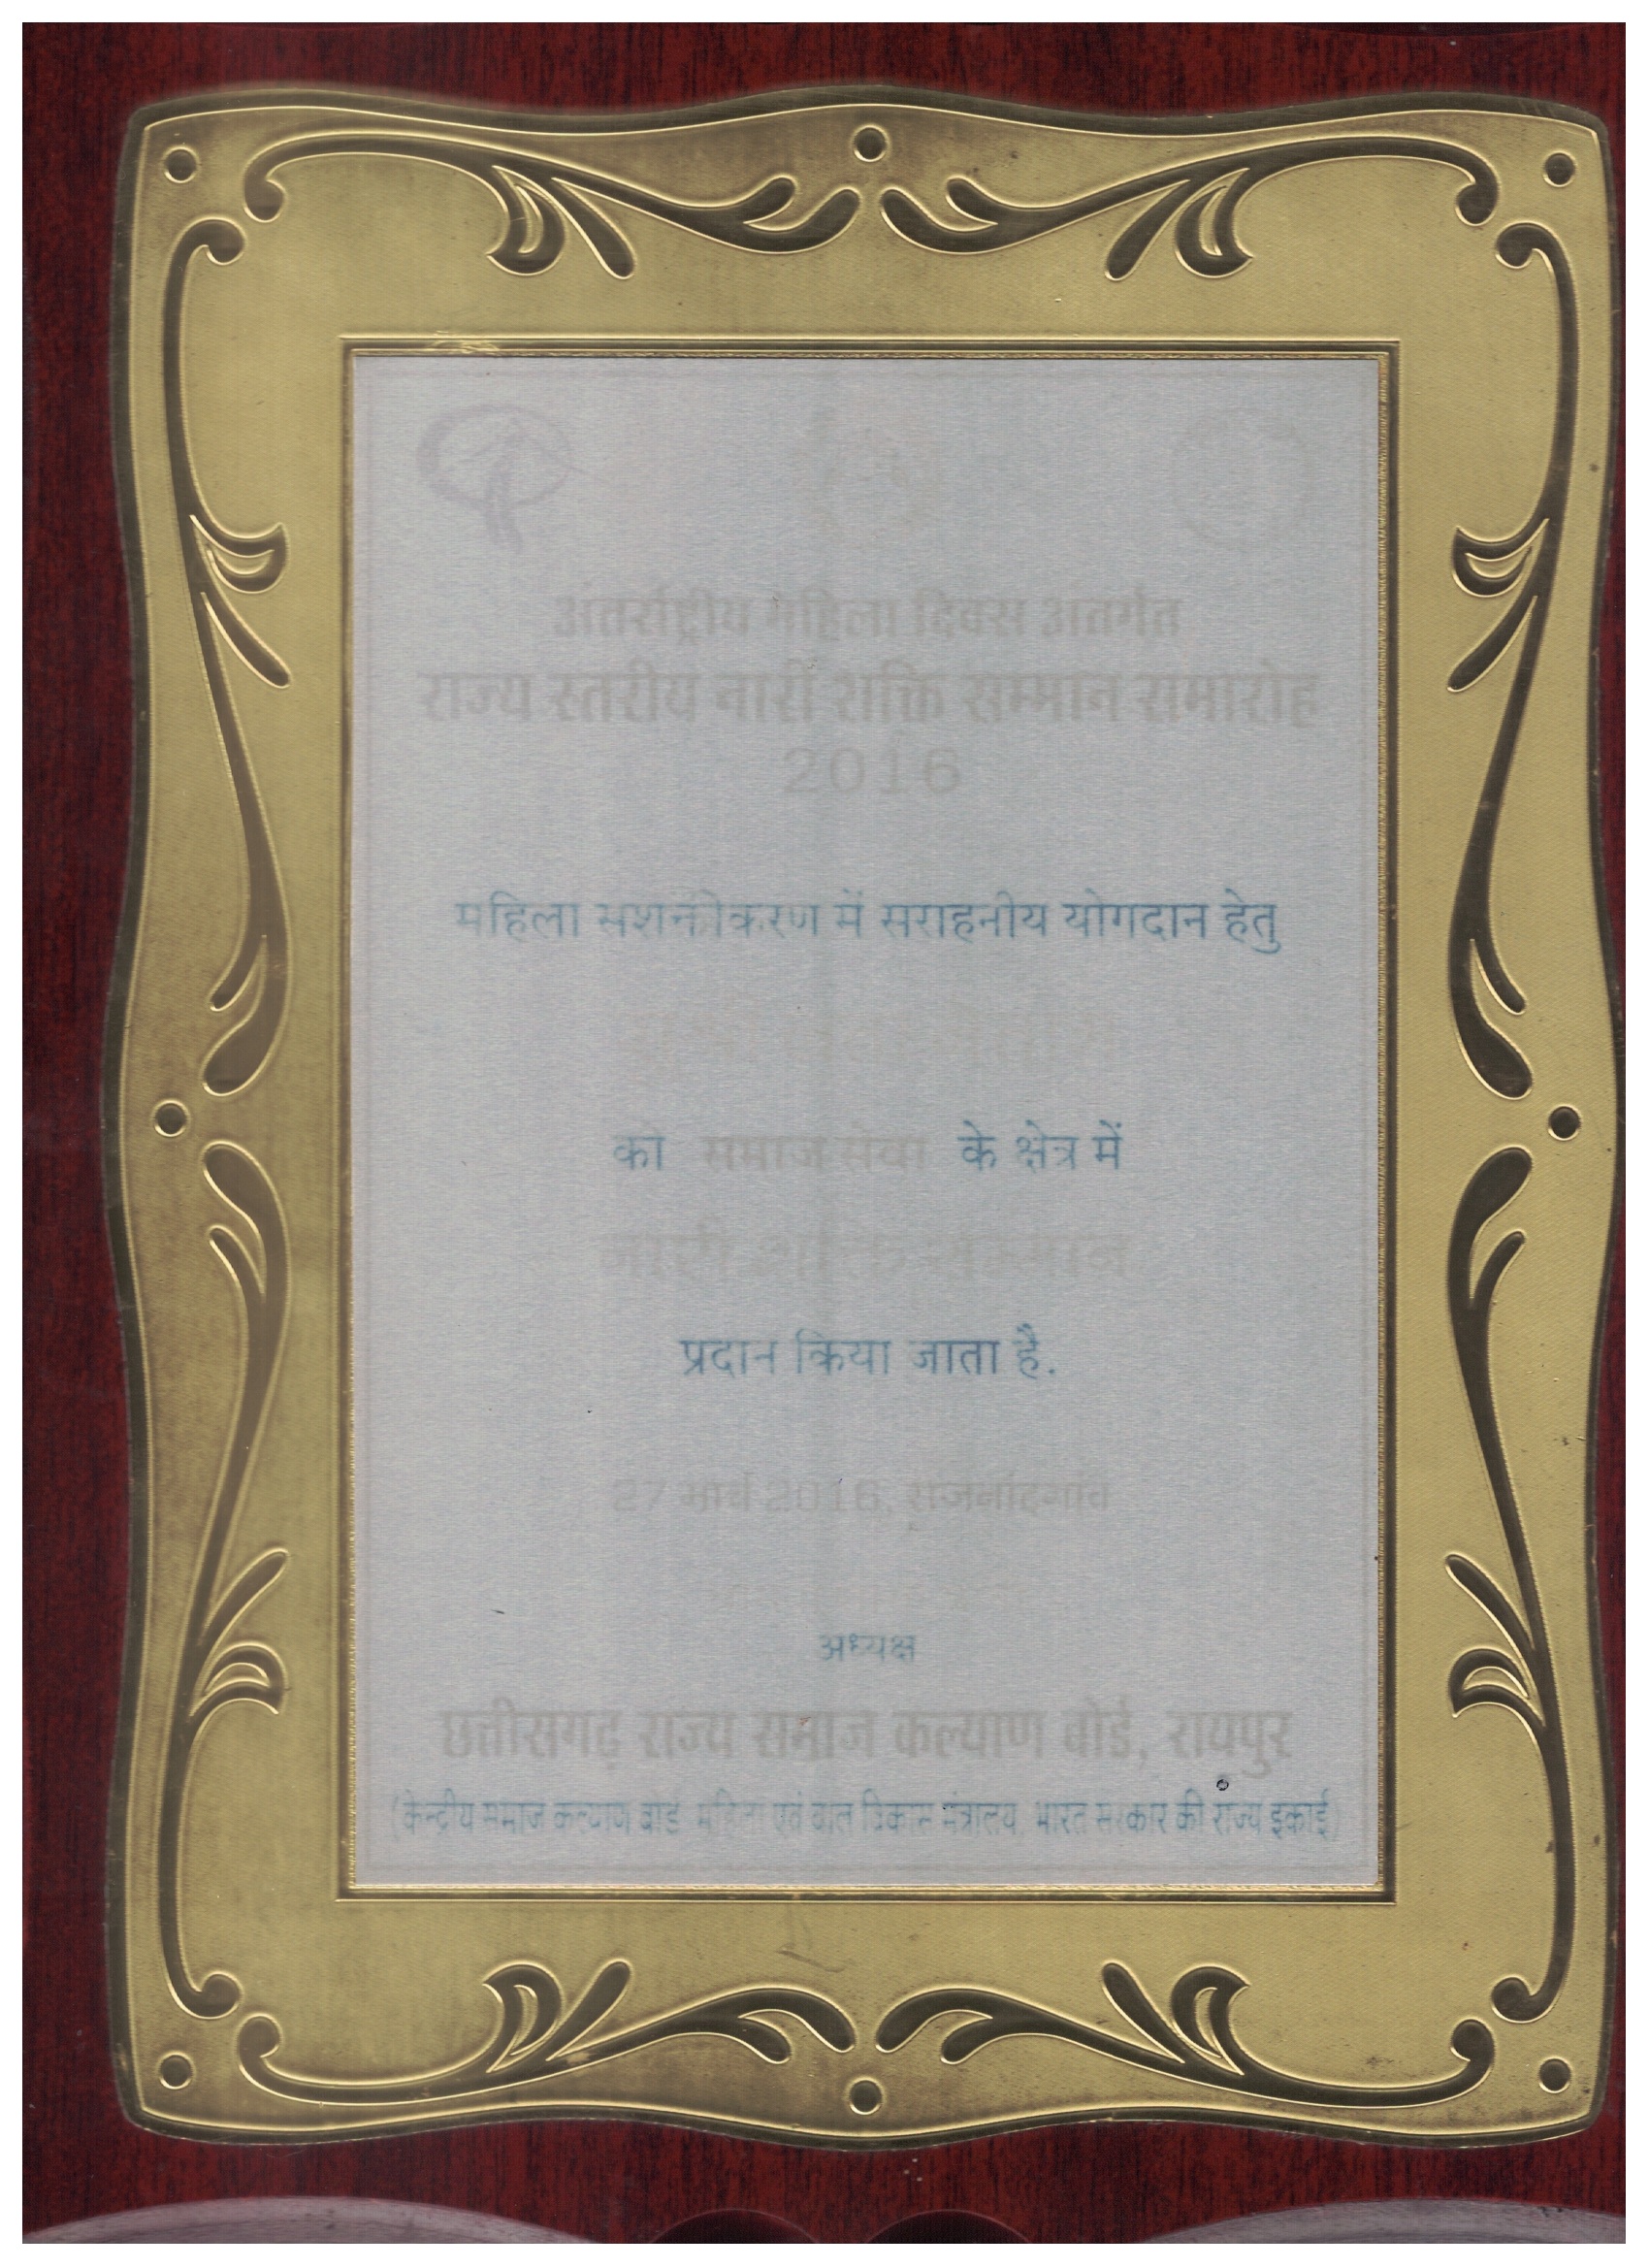 अंतर्राष्ट्रीय महिला दिवस अंतर्गत
राज्य स्तरीय नारी शक्ति सम्मान समारोह
2016
महिला सशक्तीकरण में सराहनीय योगदान हेतु
को समाज सेवा के क्षेत्र में
नारी शक्ति सम्मान
प्रदान किया जाता है.
27 मार्च 2016, राजनांदगांव
अध्यक्ष
छत्तीसगढ़ राज्य समाज कल्याण बोर्ड, रायपुर
(केन्द्रीय समाज कल्याण बोर्ड, महिला एवं बाल विकास मंत्रालय, भारत सरकार की राज्य इकाई)